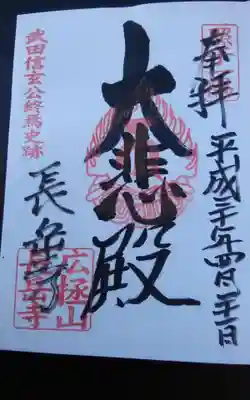 奉拝
平成二十一年四月二十一日
大悲殿
武田信玄公終焉史跡
長岳寺
広拯山
長岳寺